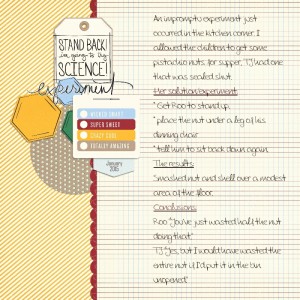 STAND BACK!
I'm going to try
SCIENCE!
experiment
WICKED SMART
SUPER SWEET
CRAZY COOL
TOTALLY AMAZING
January
2015
An impromptu experiment just
occurred in the kitchen corner. I
allowed the children to get some
pistachio nuts for supper, TJ had one
that was sealed shut.
Her solution/experiment:
* Get Roo to stand up.
* place the nut under a leg of his
dinning chair
* tell him to sit back down again.
The results:
Smashed nut and shell over a modest
area of the floor.
Conclusions:
Roo "You've just wasted half the nut
doing that"
TJ "Yes, but I would have wasted the
entire nut if I'd put it in the bin
unopened"